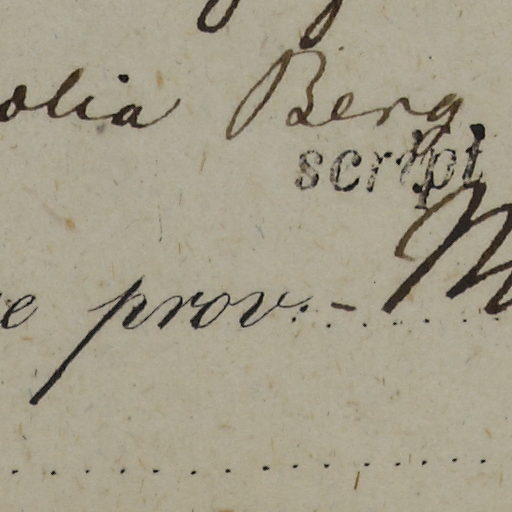 olia Berg
script
e prov. - M